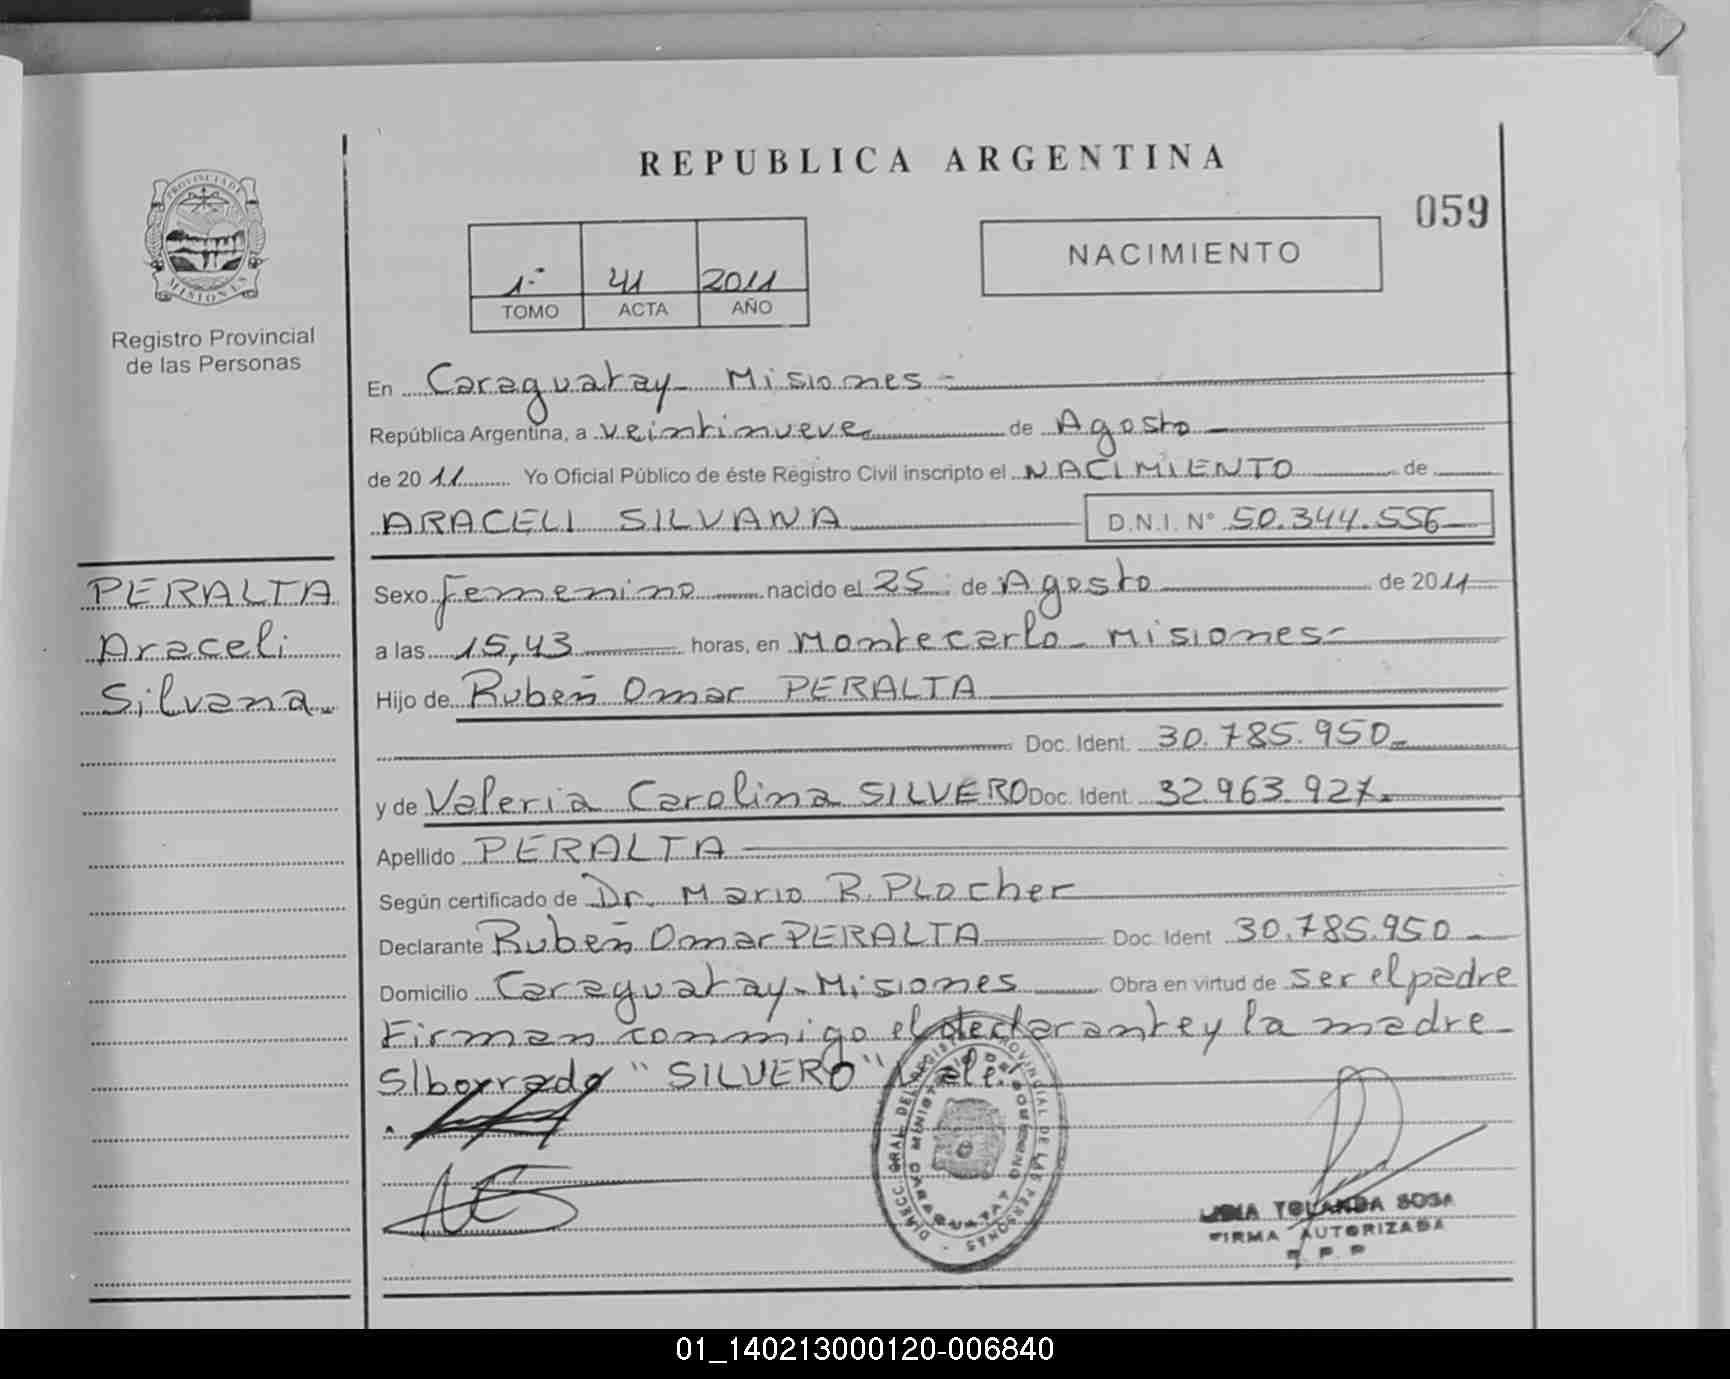 REPUBLICA ARGENTINA
059
NACIMIENTO
1º 41 2011
TOMO ACTA AÑO
PROVINCIA DE MISIONES
Registro Provincial
de las Personas
En Caraguatay - Misiones -
República Argentina, a veintinueve de Agosto
de 2011 Yo Oficial Público de éste Registro Civil inscripto el NACIMIENTO de
ARACELI SILVANA D.N.I. N° 50.344.556
PERALTA
Araceli
Silvana
Sexo femenino nacido el 25 de Agosto de 2011
a las 15,43 horas, en Montecarlo - Misiones -
Hijo de Rubén Omar PERALTA
Doc. Ident. 30.785.950
y de Valeria Carolina SILVERO Doc. Ident. 32.963.927
Apellido PERALTA
Según certificado de Dr. Mario R. Plocher
Declarante Rubén Omar PERALTA Doc. Ident 30.785.950
Domicilio Caraguatay - Misiones Obra en virtud de ser el padre
Firman conmigo el declarante y la madre
S/borrado "SILVERO" Vale.
DIRECC. GRAL. DEL REGIST. PROVINCIAL DE LAS PERSONAS
MINISTERIO DE GOBIERNO
CARAGUATAY
YOLANDA SOSA
FIRMA AUTORIZADA
01_140213000120-006840